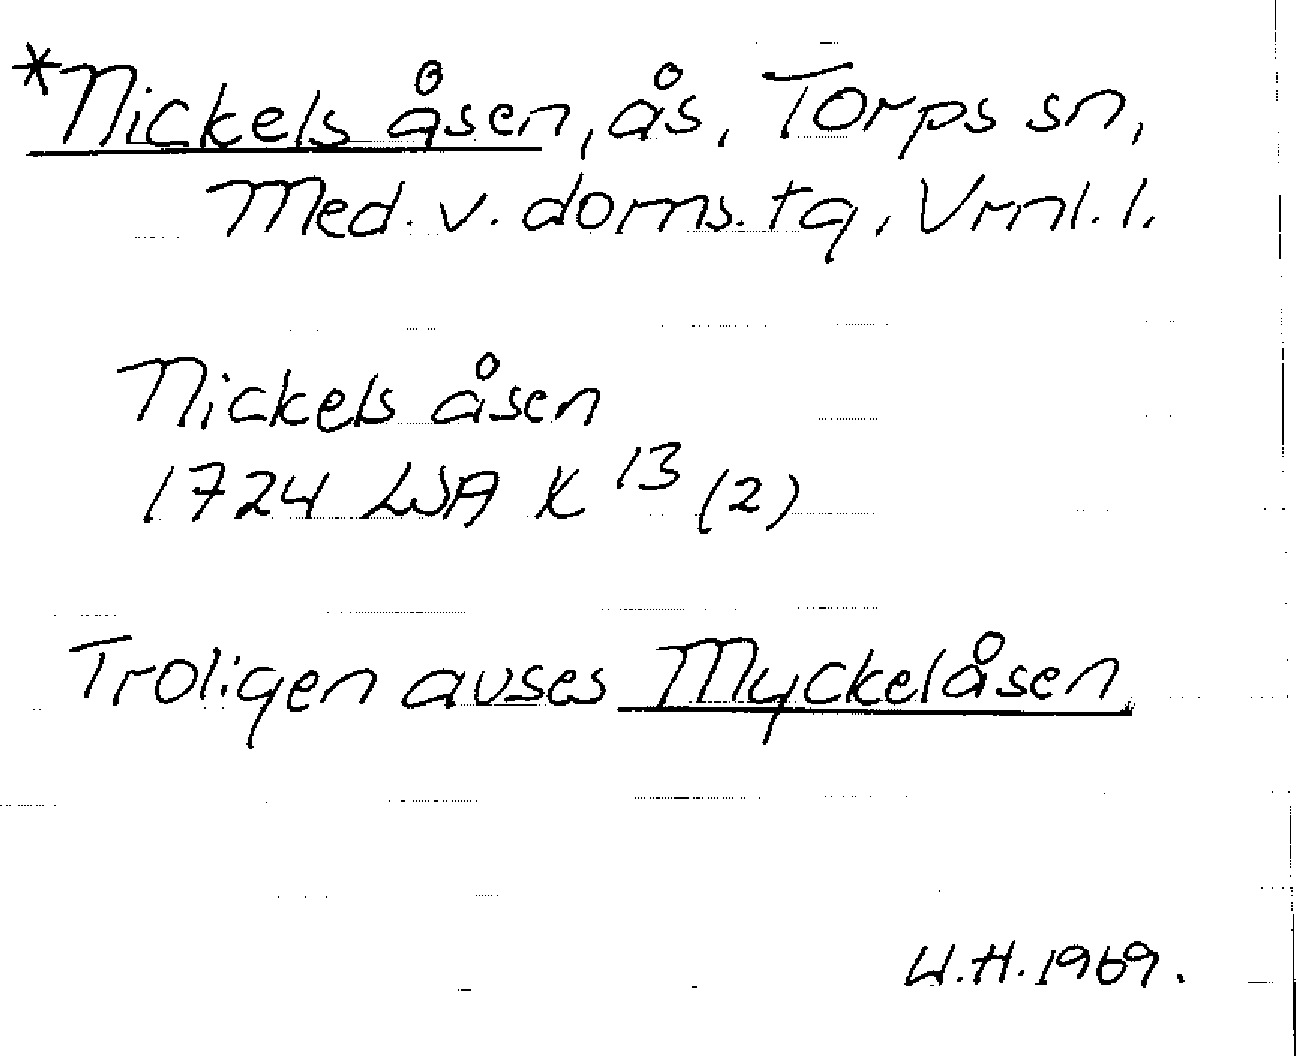 *Nickels åsen, ås, Torps sn,
Med. v. doms. tg, Vrnl. l.
Nickels åsen
1724 LSA K 13 (2)
Troligen avses Myckelåsen
U.H. 1969.